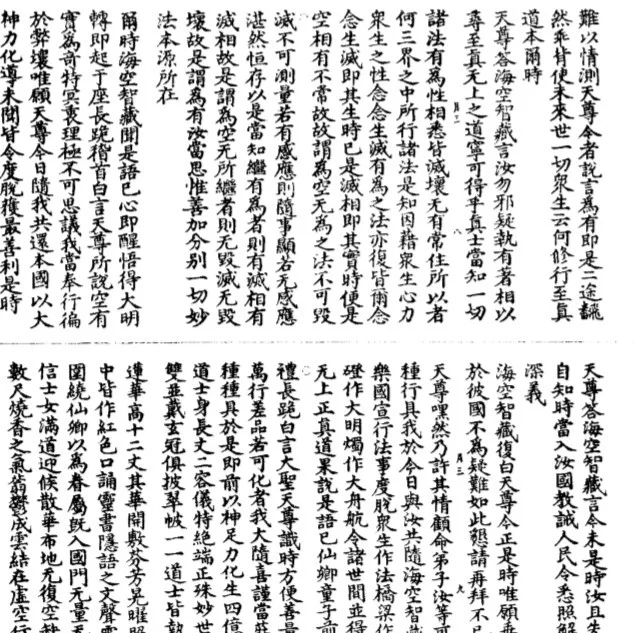 難以情測天尊令者說言為有即是二途飜
然乖背使未來世一切眾生云何修行至真
道本爾時
天尊答海空智藏言汝勿邪疑執有著相以
尋至真无上之道寧可得乎真士當知一切
諸法有為性相悉皆滅壞无有常住所以者
何三界之中所行諸法是知因藉眾生心力
眾生之性念念生滅有為之法亦復皆爾念
念生滅即其生時已是滅相即其實時便是
空相有不常故故謂為空无為之法不可毀
滅不可測量若有感應則隨事顯若无感應
湛然恒存以是當知繼有為者則有滅相有
滅相故是謂為空无所繼者則无毀滅无毀
壞故是謂為有汝當思惟善加分別一切妙
法本源所在
爾時海空智藏聞是語已心即醒悟得大明
轉即起于座長跪稽首白言天尊所說空有
實為奇特冥衷理極不可思議我當奉行徧
於弊壤唯願天尊今日隨我共還本國以大
神力化導未聞皆令度脫獲最善利是時
天尊答海空智藏言今未是時汝且
自知時當入汝國教誡人民令悉照解
深義
海空智藏復白天尊今正是時唯願
於彼國不為疑難如此懃請再拜不
天尊嘿然乃許其情顧命弟子汝等可
種行具我於今日與汝共隨海空智藏
樂國宣行法事度脫眾生作法橋梁作
磴作大明燭作大舟航令諸世間並得
无上正真道果說是語已仙卿童子前
禮長跪白言大聖天尊識時方便善量
萬行差品若可化者我大隨喜謹當
種種具於是即前以神足力化生四億
道士身長丈二容儀特絕端正殊妙世
雙並戴玄冠俱披翠帔一一道士皆執
蓮華高十二丈其華開敷芬芳晃曜
中皆作紅色口誦靈書隱語之文聲
圍繞仙卿以為眷屬既入國門无量天
信士女滿道迎候散華布地无復空缺
數尺燒香之氣蓊鬱成雲結在虛空